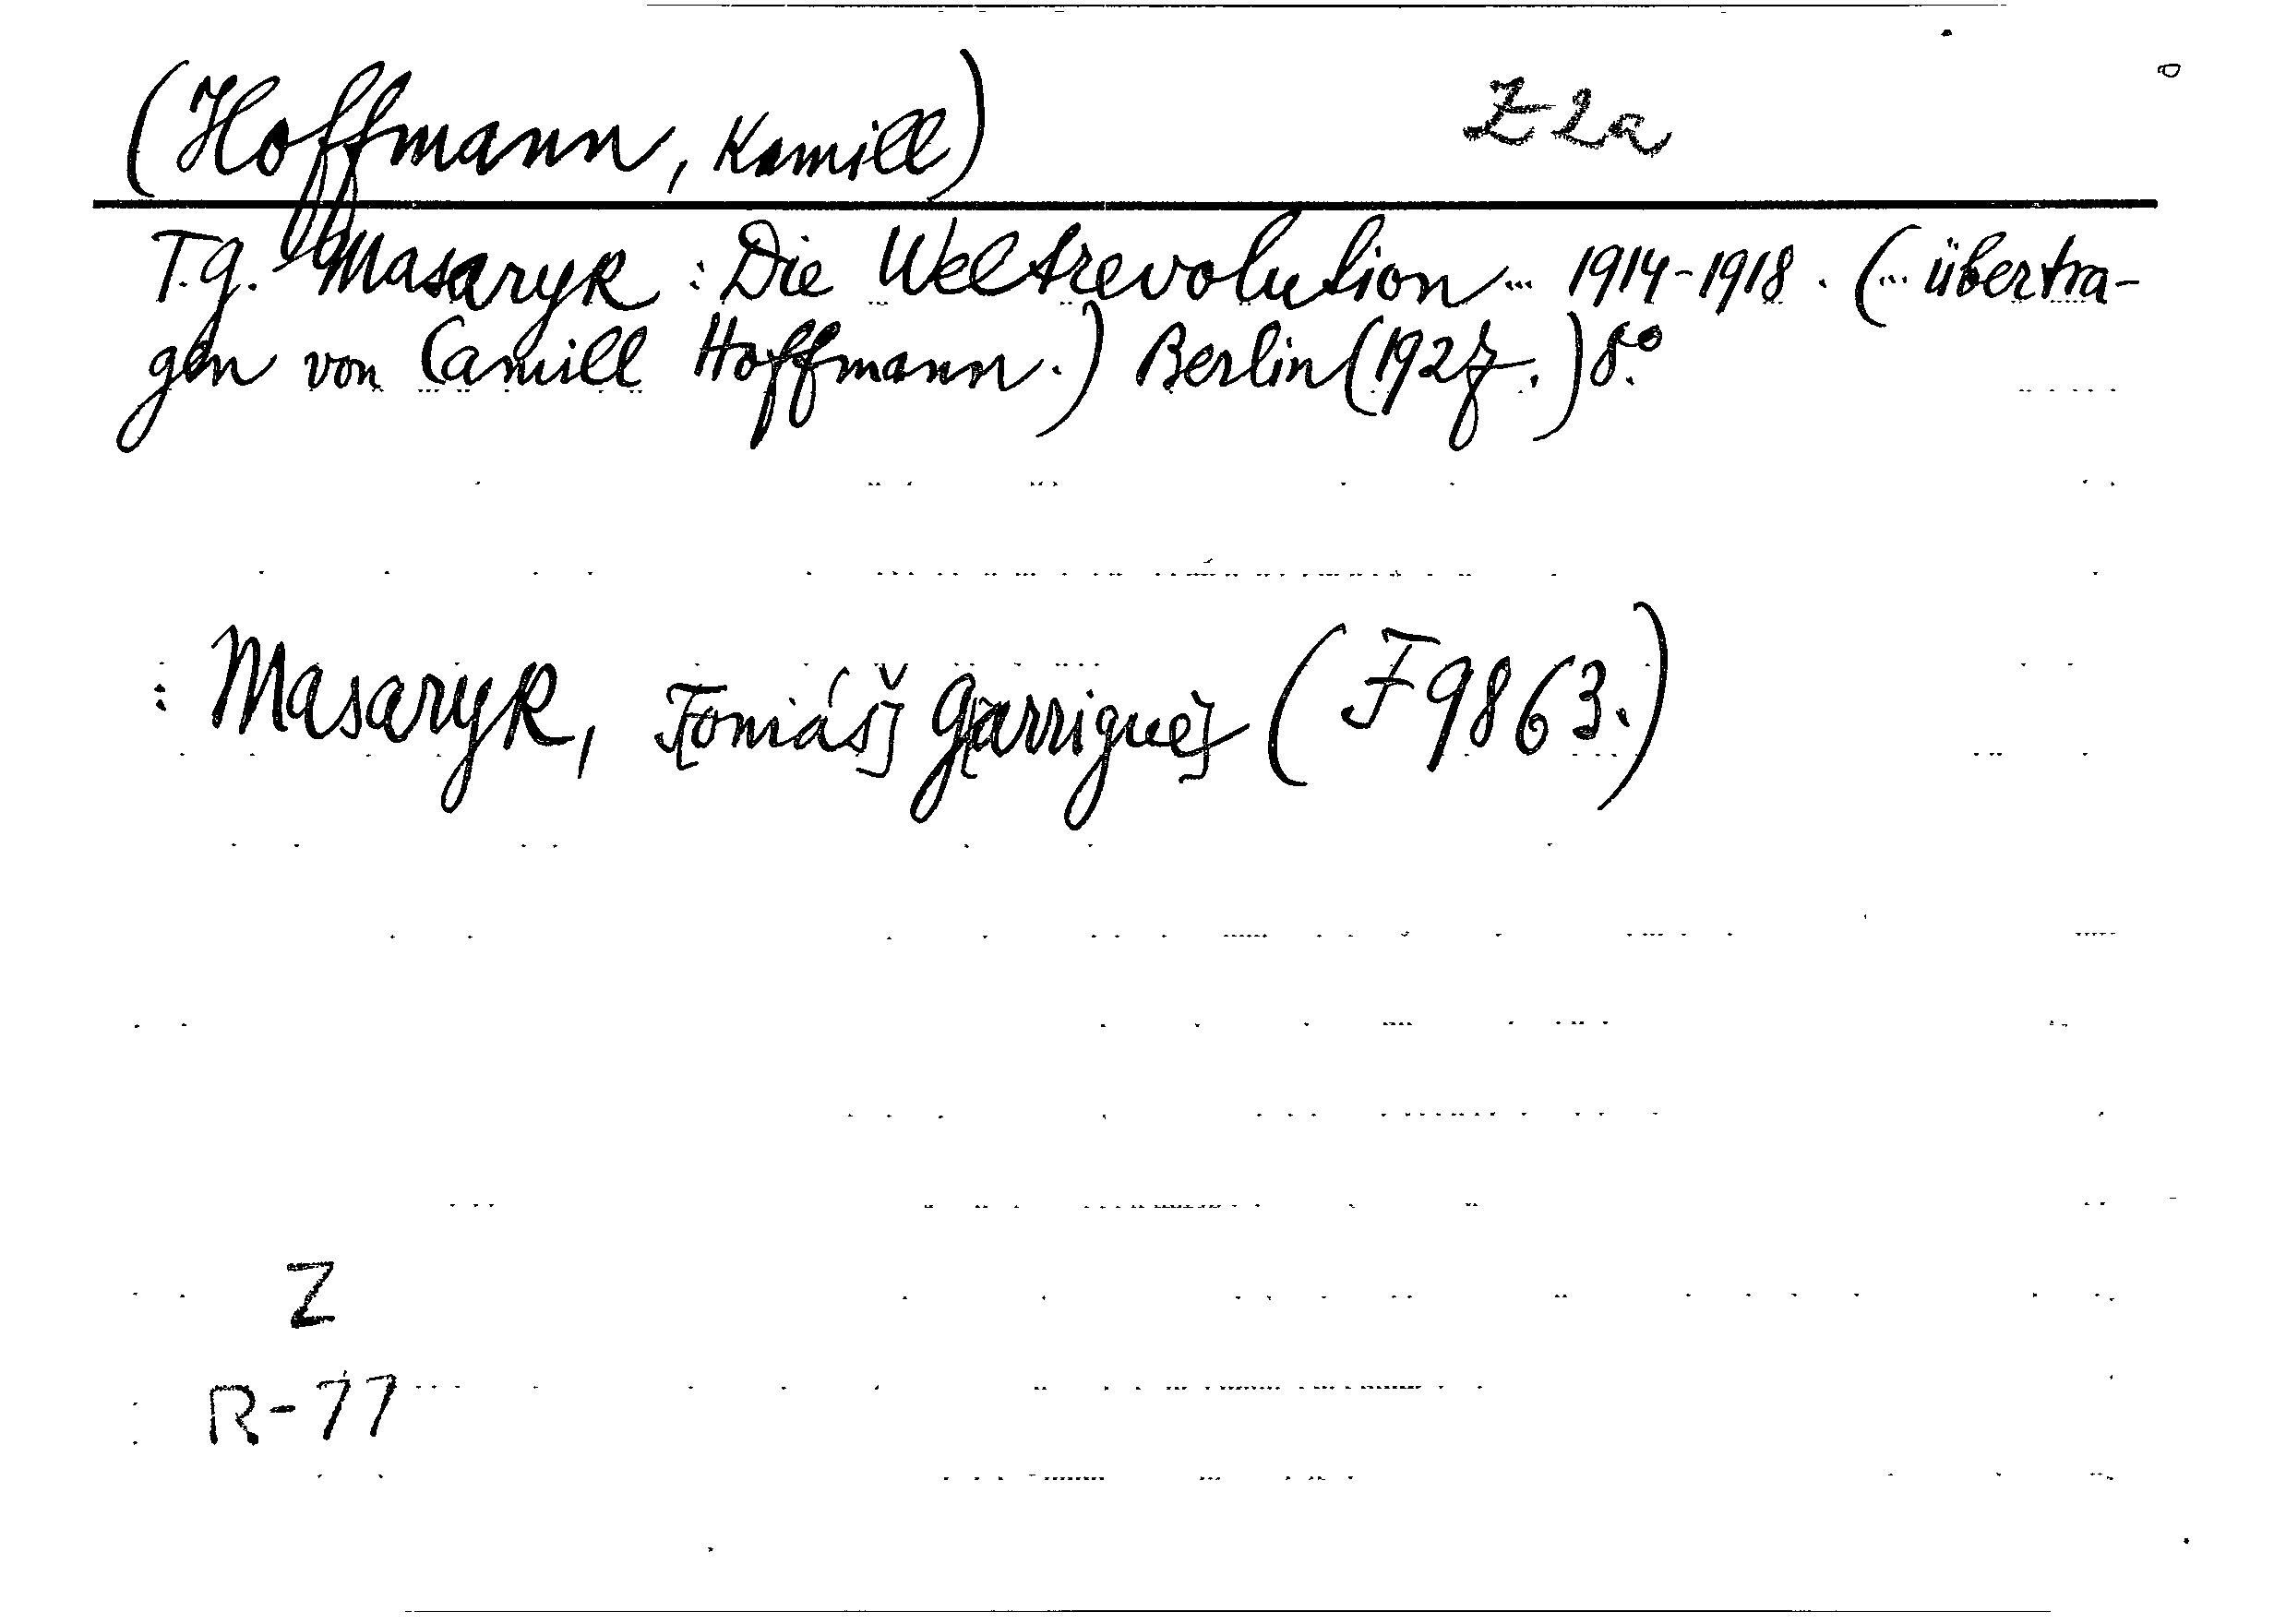 (Hoffmann, Kamill) Z 2a
T.G. Masaryk : Die Weltrevolution ... 1914-1918 . (... übertra-
gen von Camill Hoffmann.) Berlin (1927.) 8.°
: Masaryk, T[omáš] G[arrigue] (F 9863.)
Z
R-77